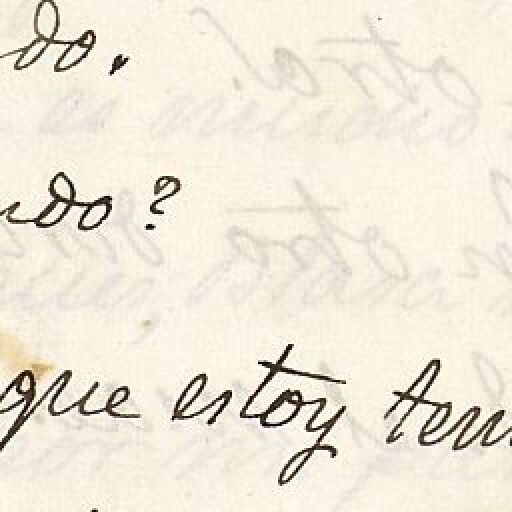 do.
ndo?
que estoy tem